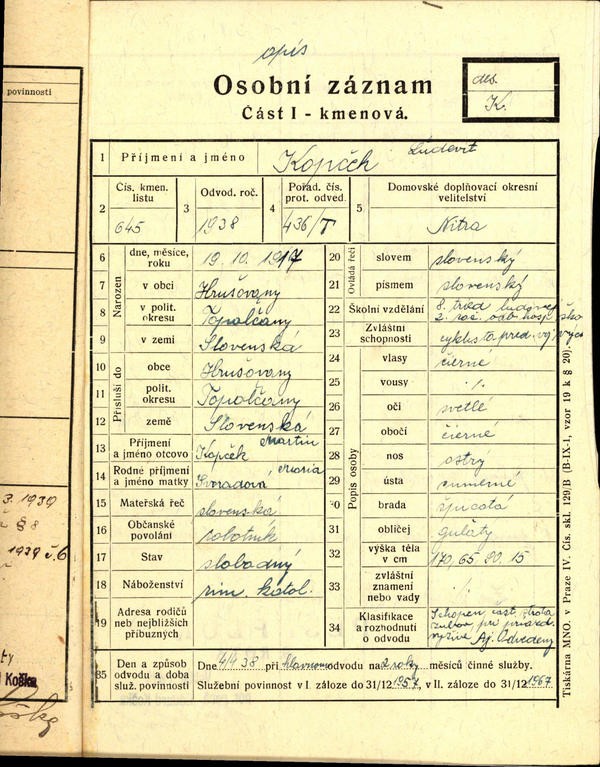 povinnosti
3. 1939
č § 8
1939 č. 6
Koška
opis
Osobní záznam
Část I - kmenová.
des.
K.
1 Příjmení a jméno Kopček Ľudovít
2 Čís. kmen. listu 645
3 Odvod. roč. 1938
4 Pořad. čís. prot. odved. 436/T
5 Domovské doplňovací okresní velitelství Nitra
Narozen
6 dne, měsíce, roku 19. 10. 1917
7 v obci Hrušovany
8 v polit. okresu Topoľčany
9 v zemi Slovenská
Přísluší do
10 obce Hrušovany
11 polit. okresu Topoľčany
12 země Slovenská
13 Příjmení a jméno otcovo Kopček Martin
14 Rodné příjmení a jméno matky Svoradová Maria
15 Mateřská řeč slovenská
16 Občanské povolání robotník
17 Stav slobodný
18 Náboženství rím. katol.
19 Adresa rodičů neb nejbližších příbuzných
Ovládá řeči
20 slovem slovenský
21 písmem slovenský
22 Školní vzdělání 8. tried ľudovej
2. roč. odb. hosp. ško
23 Zvláštní schopnosti cyklista pred. voj. výcv
Popis osoby
24 vlasy čierné
25 vousy ·/.
26 oči svetlé
27 obočí čierné
28 nos ostrý
29 ústa úmerné
30 brada špicatá
31 obličej guľatý
32 výška těla v cm 170, 65 20, 15
33 zvláštní znamení nebo vady ·/.
34 Klasifikace a rozhodnutí o odvodu Schopen, část. strata
zubov pri priazd.
výžive Aj. Odvedený
35 Den a způsob odvodu a doba služ. povinnosti
Dne 4/4 38 při hlavnom odvodu na 2 roky měsíců činné služby.
Služební povinnost v I. záloze do 31/12 1957, v II. záloze do 31/12 1967
Tiskárna MNO. v Praze IV. Čís. skl. 129/B (B-IX-1, vzor 19 k § 20).